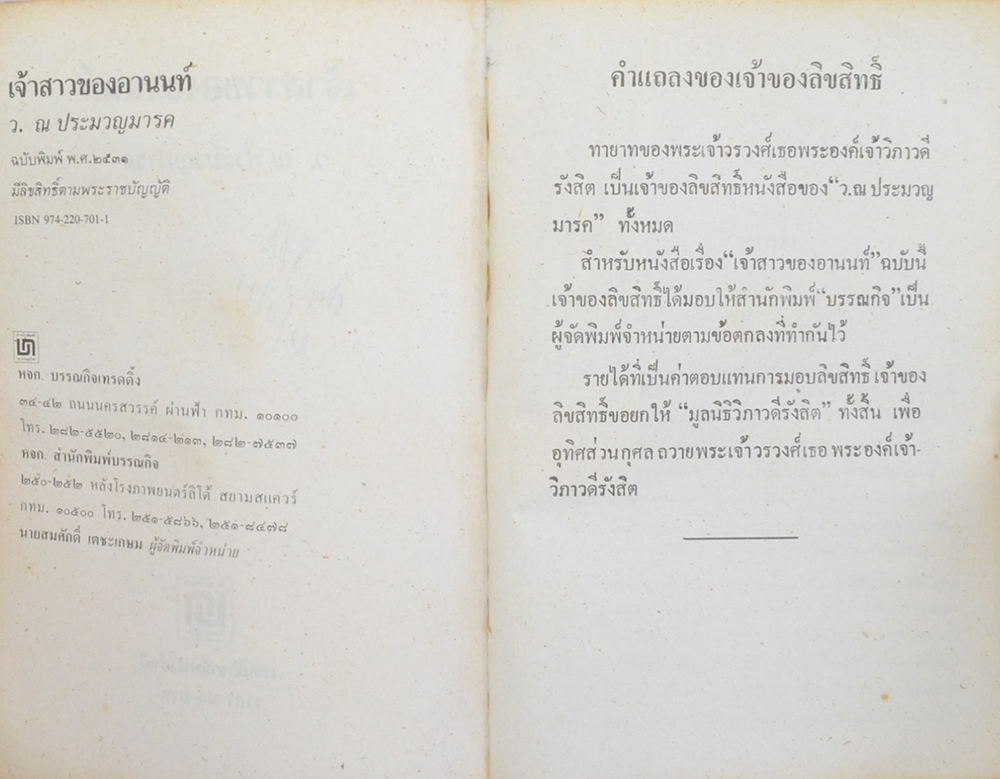 เจ้าสาวของอานนท์
ว. ณ ประมวญมารค
ฉบับพิมพ์ พ.ศ.๒๕๓๑
มีลิขสิทธิ์ตามพระราชบัญญัติ
ISBN 974-220-701-1
หจก. บรรณกิจเทรดดิ้ง
๓๔-๔๒ ถนนนครสวรรค์ ผ่านฟ้า กทม. ๑๐๑๐๐
โทร. ๒๘๒-๕๕๒๐, ๒๘๑๔-๒๑๓, ๒๘๒-๗๕๓๗
หจก. สำนักพิมพ์บรรณกิจ
๒๕๐-๒๕๒ หลังโรงภาพยนตร์ลิโด้ สยามสแควร์
กทม. ๑๐๕๐๐ โทร. ๒๕๑-๕๘๖๖, ๒๕๑-๘๔๗๘
นายสมศักดิ์ เตชะเกษม ผู้จัดพิมพ์จำหน่าย
คำแถลงของเจ้าของลิขสิทธิ์
ทายาทของพระเจ้าวรวงศ์เธอพระองค์เจ้าวิภาวดี
รังสิต เป็นเจ้าของลิขสิทธิ์หนังสือของ“ว.ณ ประมวญ
มารค” ทั้งหมด
สำหรับหนังสือเรื่อง“เจ้าสาวของอานนท์”ฉบับนี้
เจ้าของลิขสิทธิ์ได้มอบให้สำนักพิมพ์“บรรณกิจ”เป็น
ผู้จัดพิมพ์จำหน่ายตามข้อตกลงที่ทำกันไว้
รายได้ที่เป็นค่าตอบแทนการมอบลิขสิทธิ์ เจ้าของ
ลิขสิทธิ์ขอยกให้ “มูลนิธิวิภาวดีรังสิต” ทั้งสิ้น เพื่อ
อุทิศส่วนกุศล ถวายพระเจ้าวรวงศ์เธอ พระองค์เจ้า-
วิภาวดีรังสิต